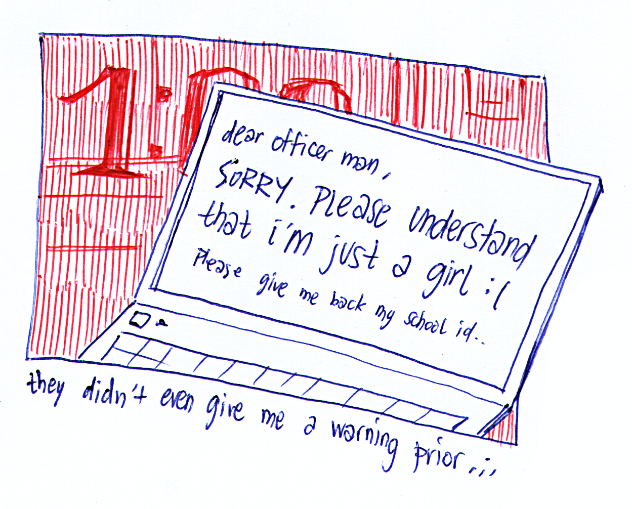 1:00
dear officer man,
SORRY. Please understand
that i'm just a girl :(
please give me back my school id..
they didn't even give me a warning prior...